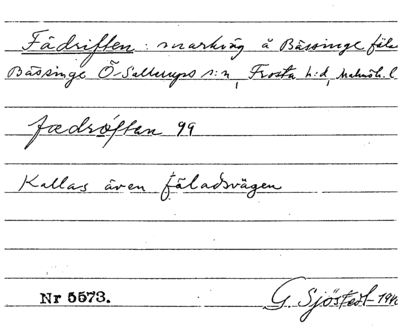 Fädriften: markväg å Bässinge fäla
Bässinge Ö. Sallerups s:n, Frosta h:d, Malmöh. l
fædrǿften 99
Kallas även fäladsvägen
Nr 5573.
G. Sjöstedt